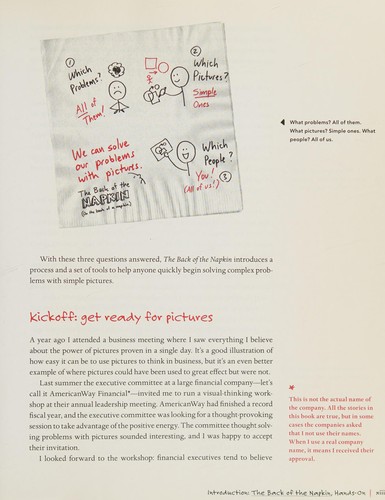 ① Which Problems?
All of Them!
② Which Pictures?
Simple Ones
We can solve
our problems
with pictures.
The Back of the
NAPKIN
(On the back of a napkin)
Which People?
You!
(All of us!)
③
◀ What problems? All of them.
What pictures? Simple ones. What
people? All of us.
With these three questions answered, The Back of the Napkin introduces a
process and a set of tools to help anyone quickly begin solving complex prob-
lems with simple pictures.
kickoff: get ready for pictures
A year ago I attended a business meeting where I saw everything I believe
about the power of pictures proven in a single day. It's a good illustration of
how easy it can be to use pictures to think in business, but it's an even better
example of where pictures could have been used to great effect but were not.
Last summer the executive committee at a large financial company—let's
call it AmericanWay Financial*—invited me to run a visual-thinking work-
shop at their annual leadership meeting. AmericanWay had finished a record
fiscal year, and the executive committee was looking for a thought-provoking
session to take advantage of the positive energy. The committee thought solv-
ing problems with pictures sounded interesting, and I was happy to accept
their invitation.
I looked forward to the workshop: financial executives tend to believe
*
This is not the actual name of
the company. All the stories in
this book are true, but in some
cases the companies asked
that I not use their names.
When I use a real company
name, it means I received their
approval.
Introduction: The Back of the Napkin, Hands-On | xiii